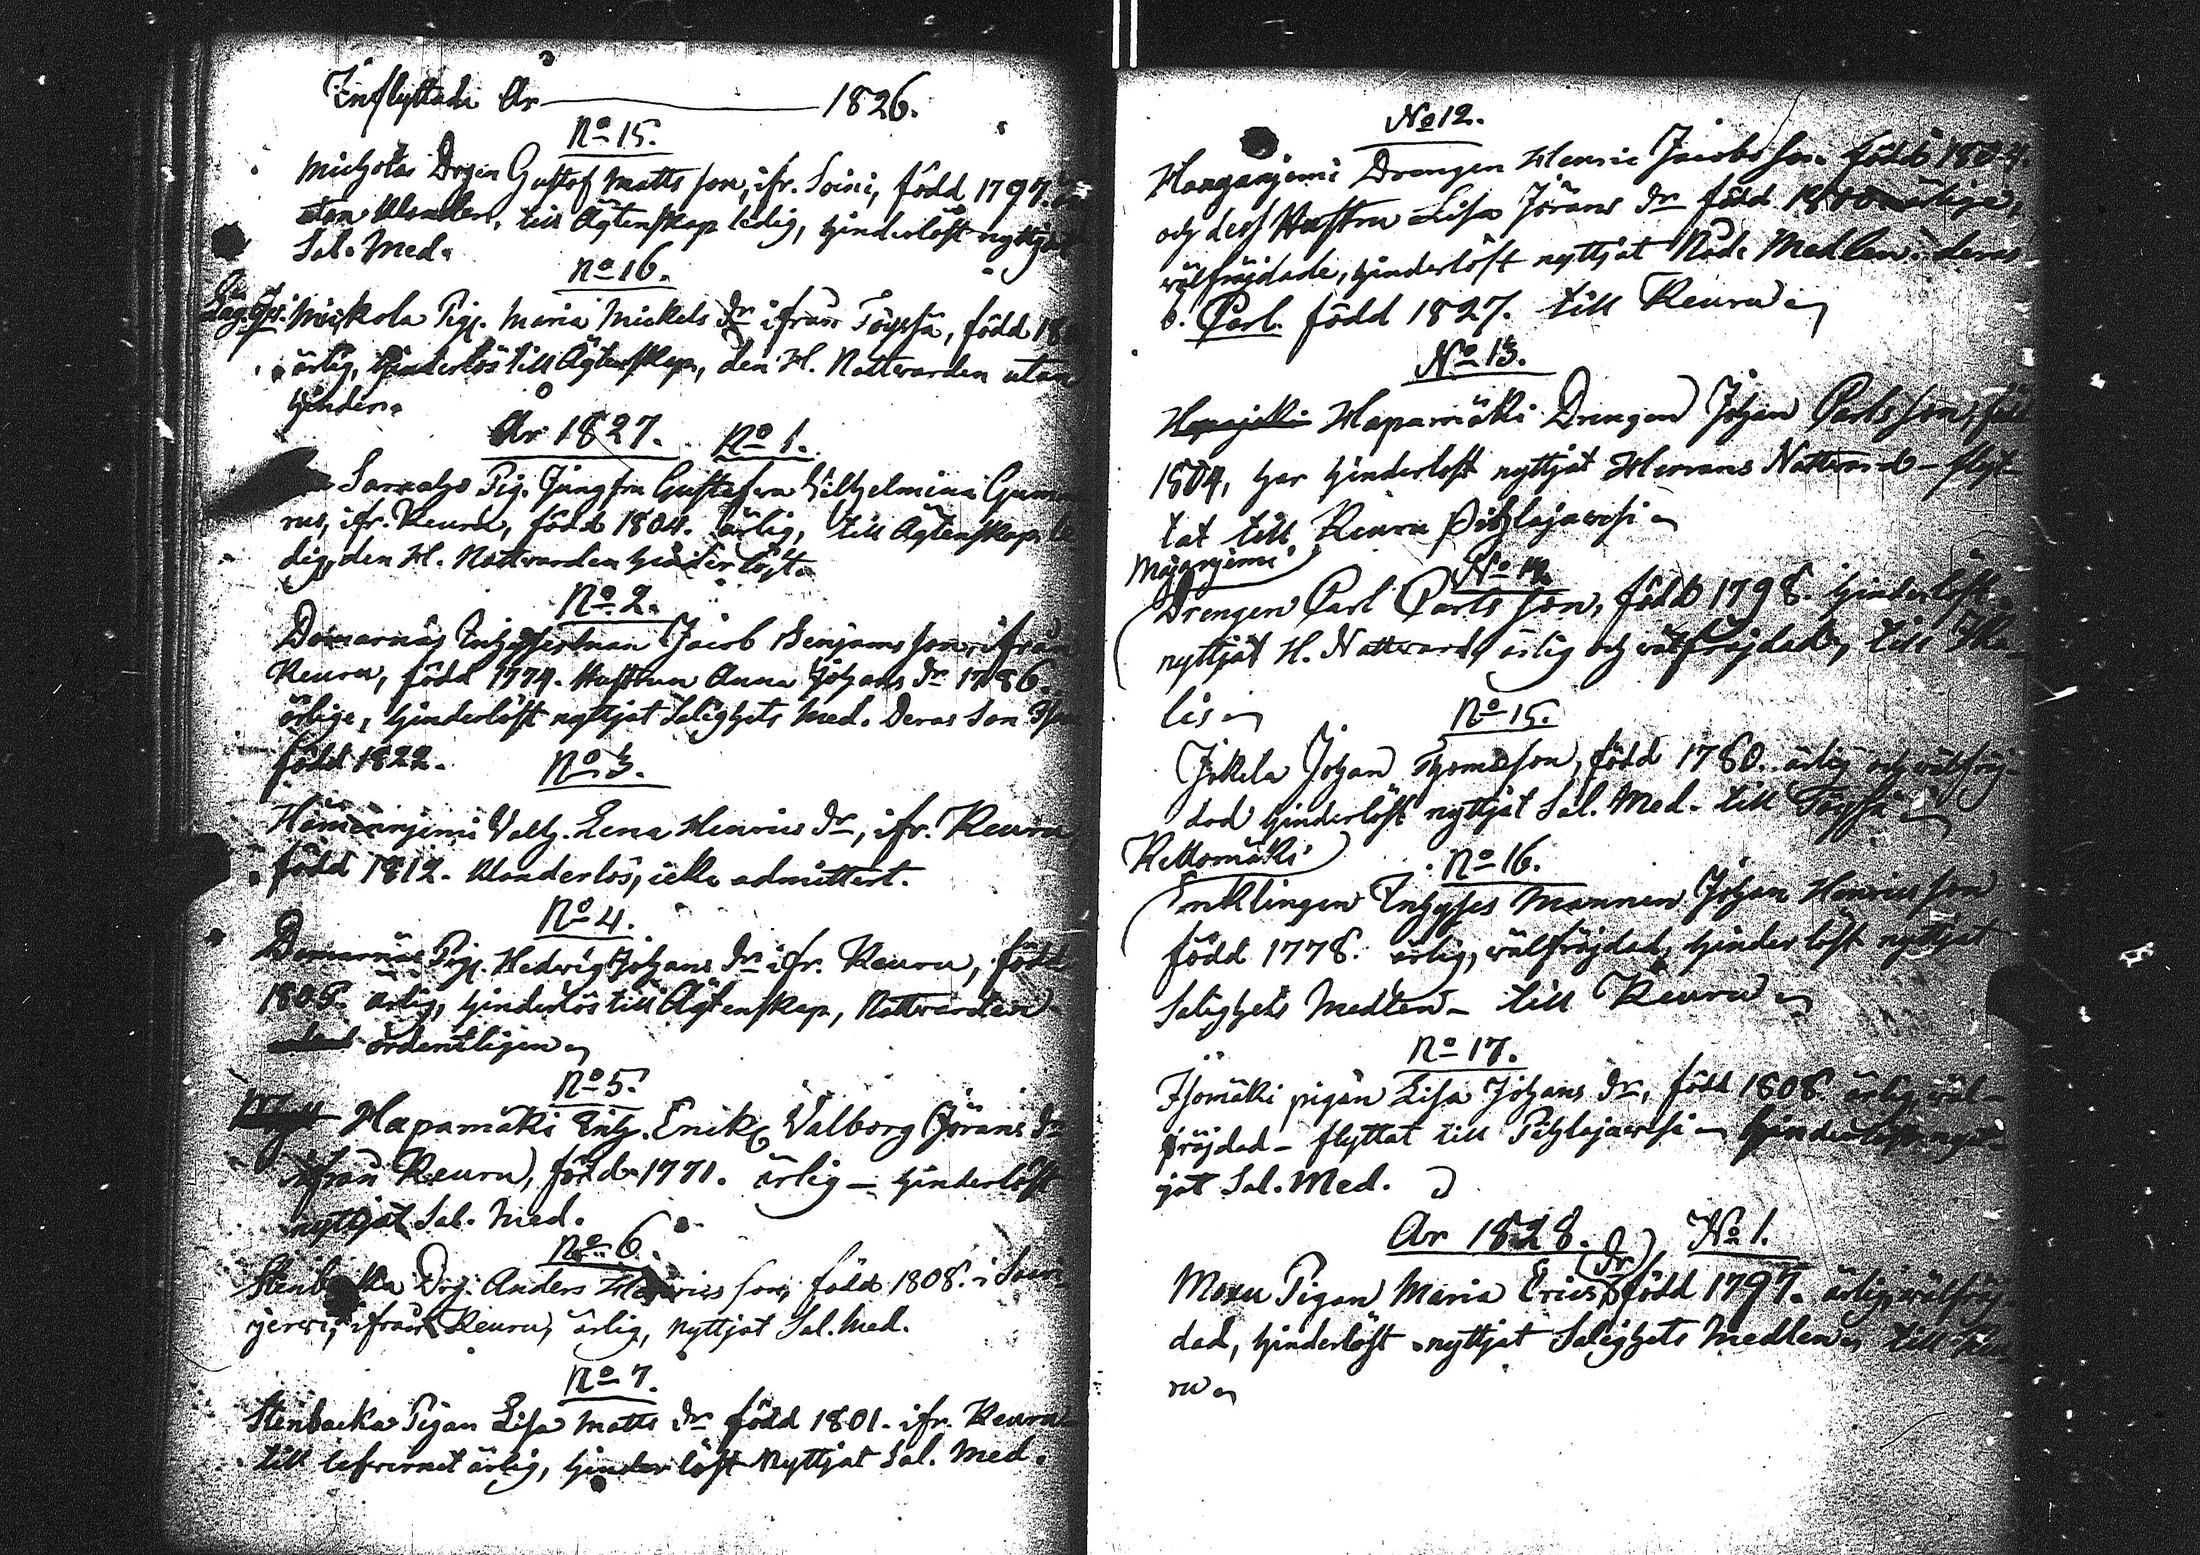 Inflyttade År 1826.
No 15.
Michola Drgen Gustaf Matts son, ifr. Soini, född 1797.
utan klander, till Ägtenskap ledig, hinderlöst nyttjat
Sal. Med.
No 16.
Miskola Pig. Maria Mickels dr ifrån Töysä, född
ärlig, hinderlös till Ägtenskap, den H. Nattvarden utan
hinder.
År 1827. No 1.
Pig. Jungfru Gustafva Wilhelmina Gum
rus, ifr. Keuru, född 1804. ärlig, till Ägtenskap le
dig, den H. Nattvarden hinderlöst.
No 2.
Domarnäs Inhysesman Jacob Benjams son, ifrån
Keuru, född 1774. Hustrun Anna Johans dr 1786.
ärlige, hinderlöst nyttjat Salighets Med. Deras Son
född 1822.
No 3.
Vallh. Lena Henrics dr, ifr. Keuru
född 1812. klanderlös, icke admittert.
No 4.
Domarnäs Pig. Hedvig Johans dr ifr. Keuru, född
1808. ärlig, hinderlös till Ägtenskap, Nattvarden
ordentligen
No 5.
Hapamäki Inh. Enk. Valborg Görans dr
ifrån Keuru, född 1771. ärlig – hinderlöst
nyttjat Sal. Med.
No 6.
Drg. Anders Henrics son, född 1808. i
jerwi, ifrån Keuru, ärlig, nyttjat Sal. Med.
No 7.
Stenbacka Pigan Lisa Matts dr född 1801. ifr. Keuru
till lefvernet ärlig, hinderlöst nyttjat Sal. Med.
No 12.
Hanganjemi Drengen Henric Jacobs son född 1804.
och dess Hustru Lisa Jörans dr född ärlige,
välfräjdade, hinderlöst nyttjat Nåde Medlen. deras
b. Carl. född 1827. till Keuru
No 13.
Hapamäki Drengen Johan Carls son, föd
1804, har hinderlöst nyttjat Herrans Nattvard – flyt
tat till Keuru Pihlajavesi
No 14
Drengen Carl Carls son, född 1798. hinderlöst
nyttjat H. Nattvard, ärlig och välfräjdad, till
lis
No 15.
Jokela Johan Thomasson, född 1780. ärlig och välfräj
dad hinderlöst nyttjat Sal. Med. till Töysä
Kettomäki
No 16.
Enklingen Inhyses Mannen Johan Henrics son
född 1778. ärlig, välfräjdad, hinderlöst nyttjat
Salighets Medlen – till Keuru
No 17.
Isomäki pigan Lisa Johans dr, född 1808. ärlig, väl
fräjdad – flyttat till Pihlajavesi hinderlöst nyt
jat Sal. Med.
År 1828. No 1.
Pigan Maria Erics dr född 1797. ärlig, välfräj
dad, hinderlöst nyttjat Salighets Medlen till Keu
ru